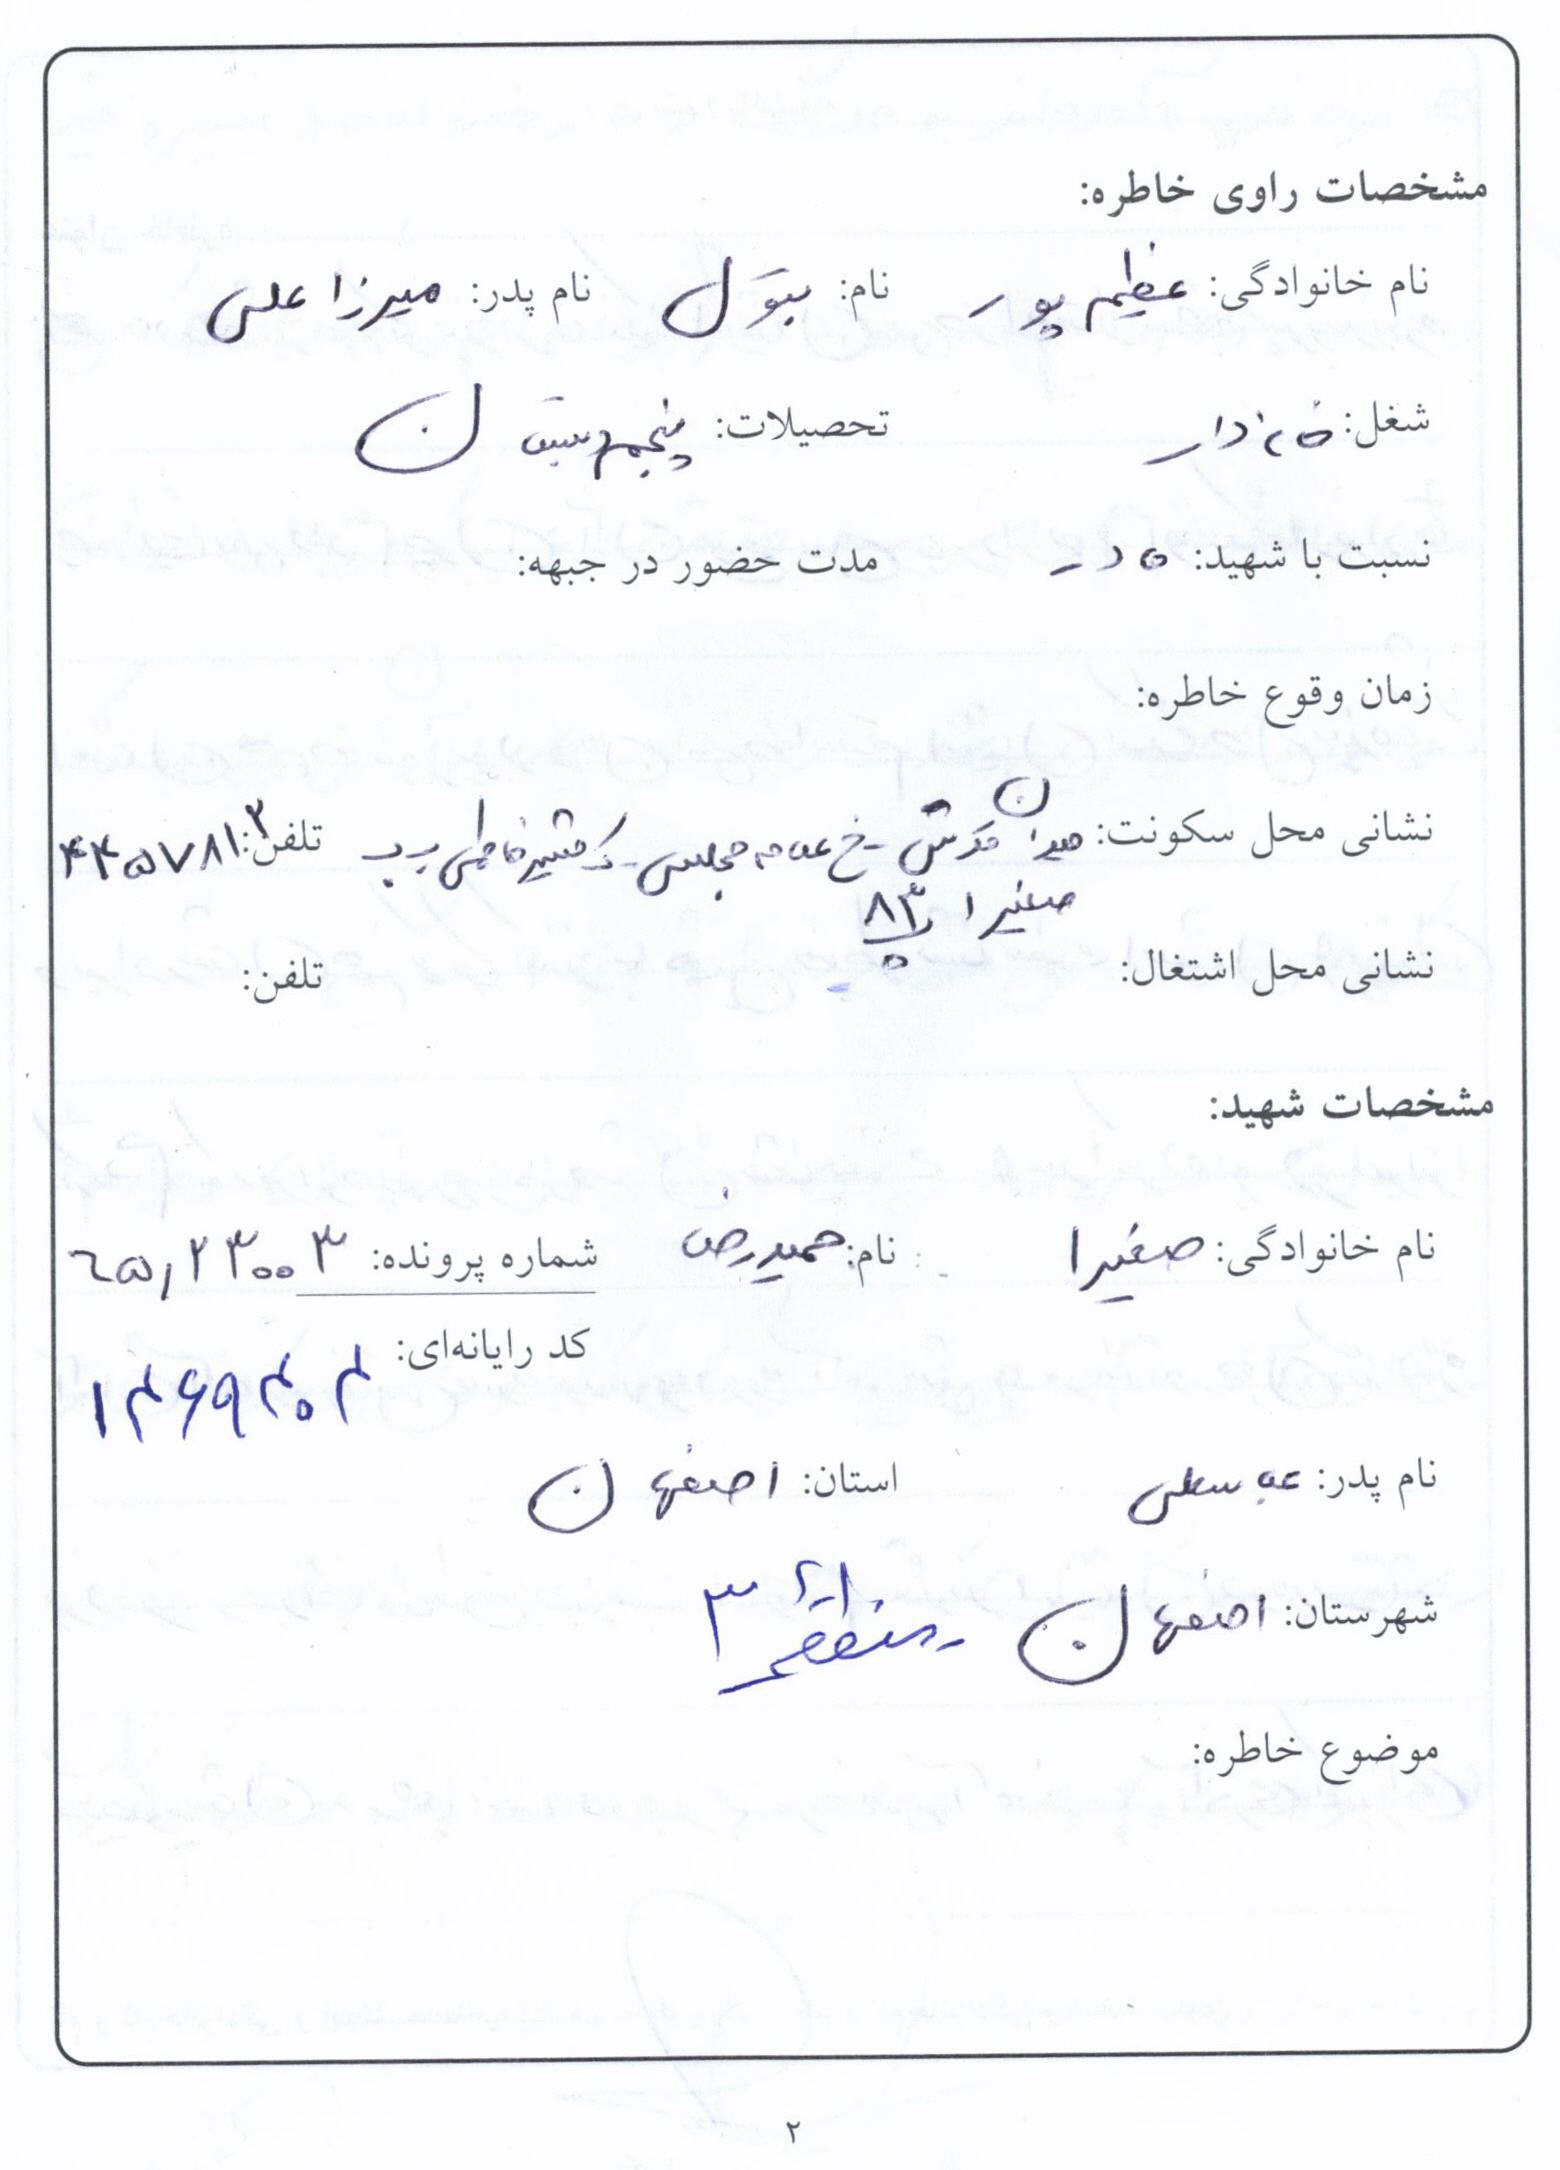 مشخصات راوی خاطره:
نام خانوادگی: عظیم پور نام: بتول نام پدر: میرزا علی
شغل: خانه دار تحصیلات: پنجم
نسبت با شهید: مادر مدت حضور در جبهه:
زمان وقوع خاطره:
نشانی محل سکونت: میدان قدس - خ علامه مجلسی - ک تلفن: ۴۴۵۷۸۱۳
صغیرا پ ۸۳
نشانی محل اشتغال: تلفن:
مشخصات شهید:
نام خانوادگی: صغیرا نام: حمیدرضا شماره پرونده: ۶۵۱۲۳۰۰۳
کد رایانه‌ای: ۱۴۶۹۴۰۴
نام پدر: عباسعلی استان: اصفهان
شهرستان: اصفهان - منطقه ۳
موضوع خاطره:
۲